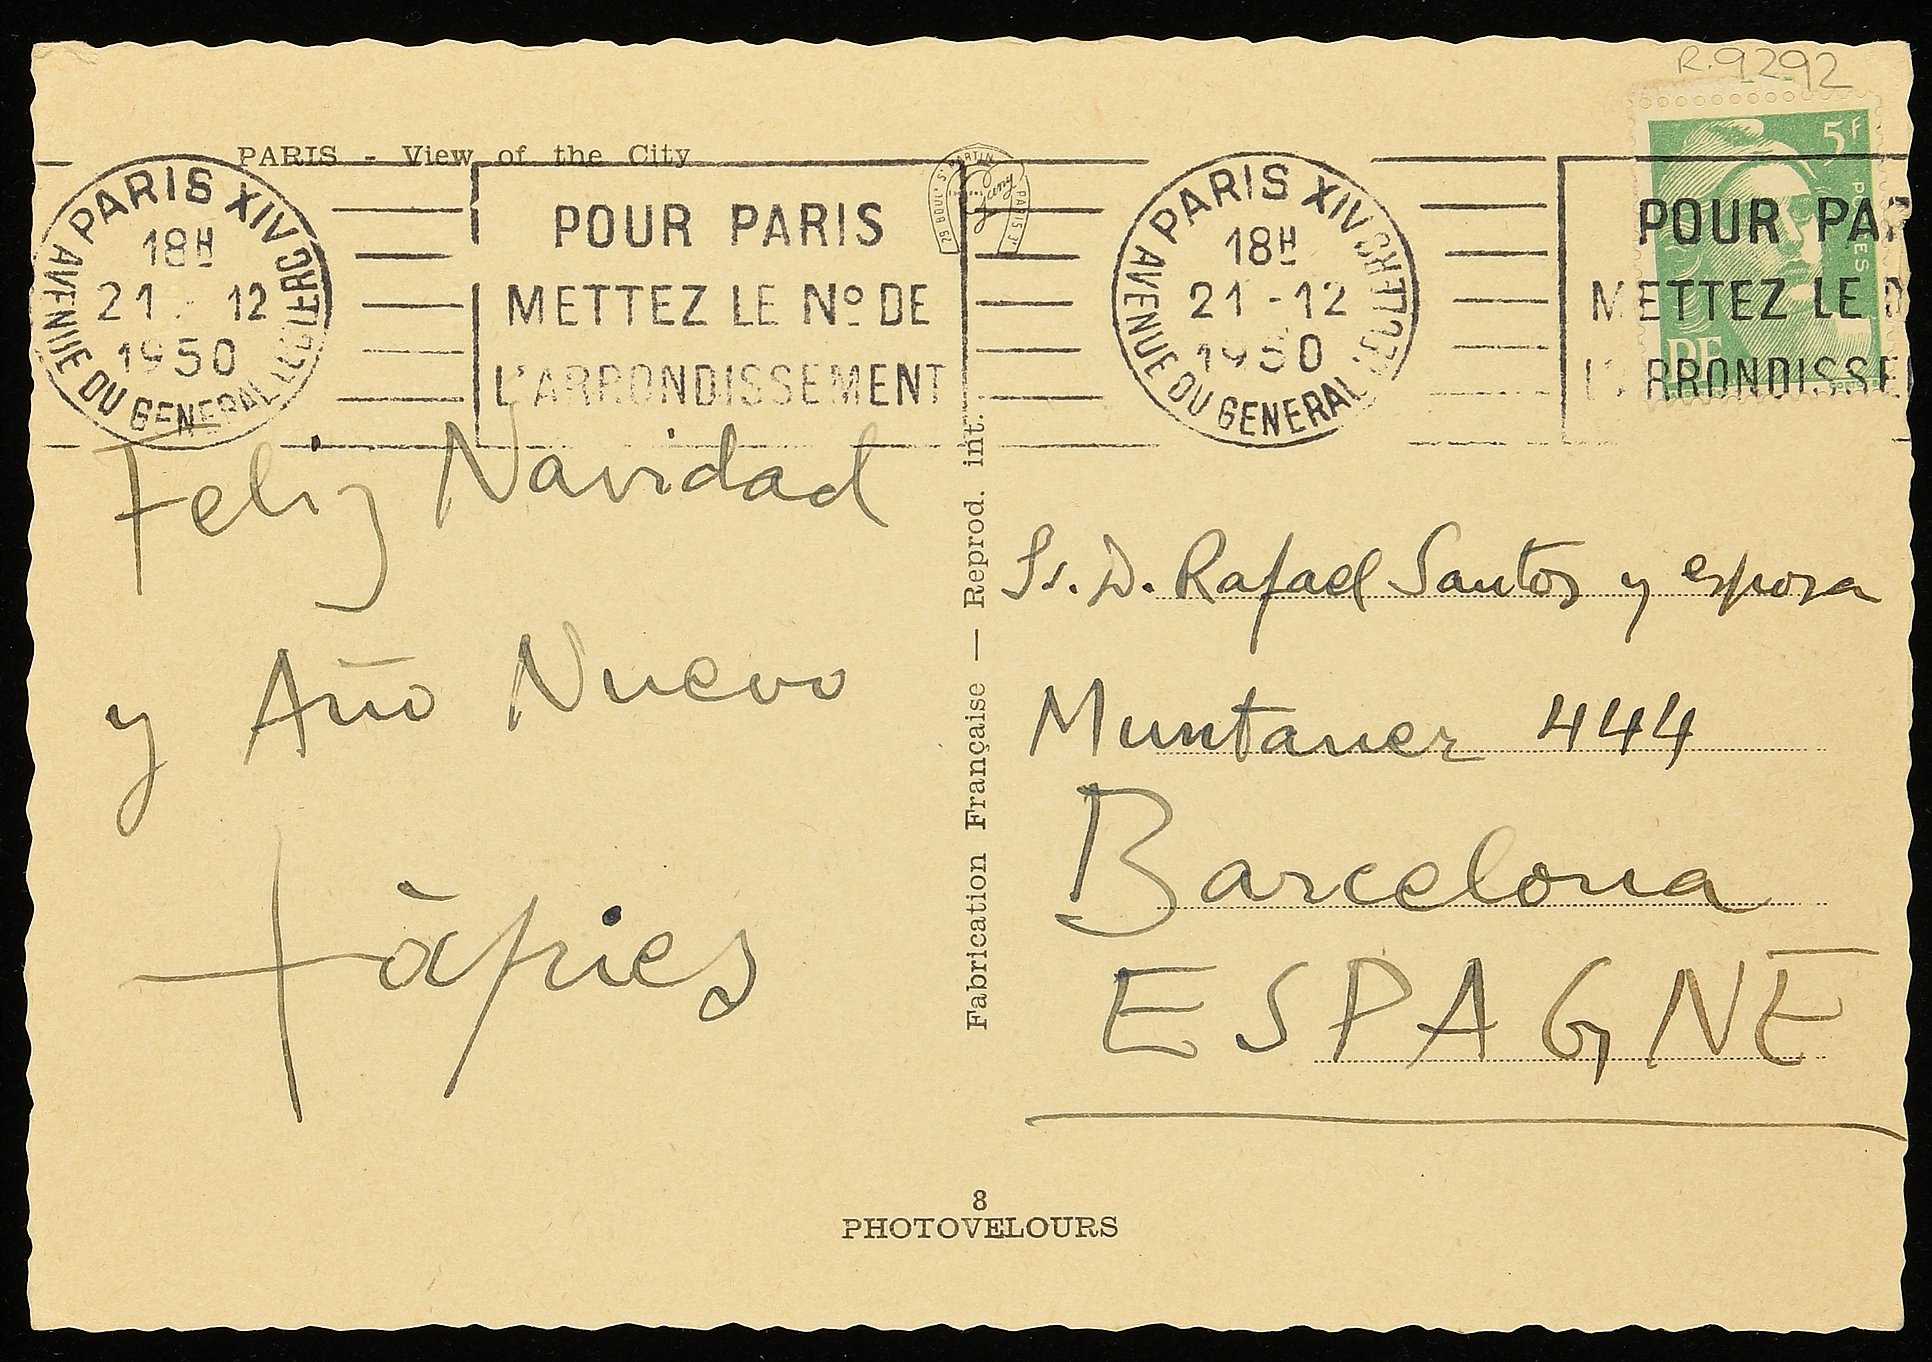 R.9292
PARIS - View of the City
PARIS XIV
AVENUE DU GENERAL LECLERC
18H
21 - 12
1950
POUR PARIS
METTEZ LE Nº DE
L'ARRONDISSEMENT
29 BOULD ST MARTIN PARIS 3E
Yany
PARIS XIV
AVENUE DU GENERAL LECLERC
18H
21 - 12
1950
POUR PAR
METTEZ LE N
L'ARRONDISSE
5F
POSTES
DE
Feliz Navidad
y Año Nuevo
Tàpies
Fabrication Française — Reprod. int.
Sr. D. Rafael Santos y esposa
Muntaner 444
Barcelona
ESPAGNE
8
PHOTOVELOURS